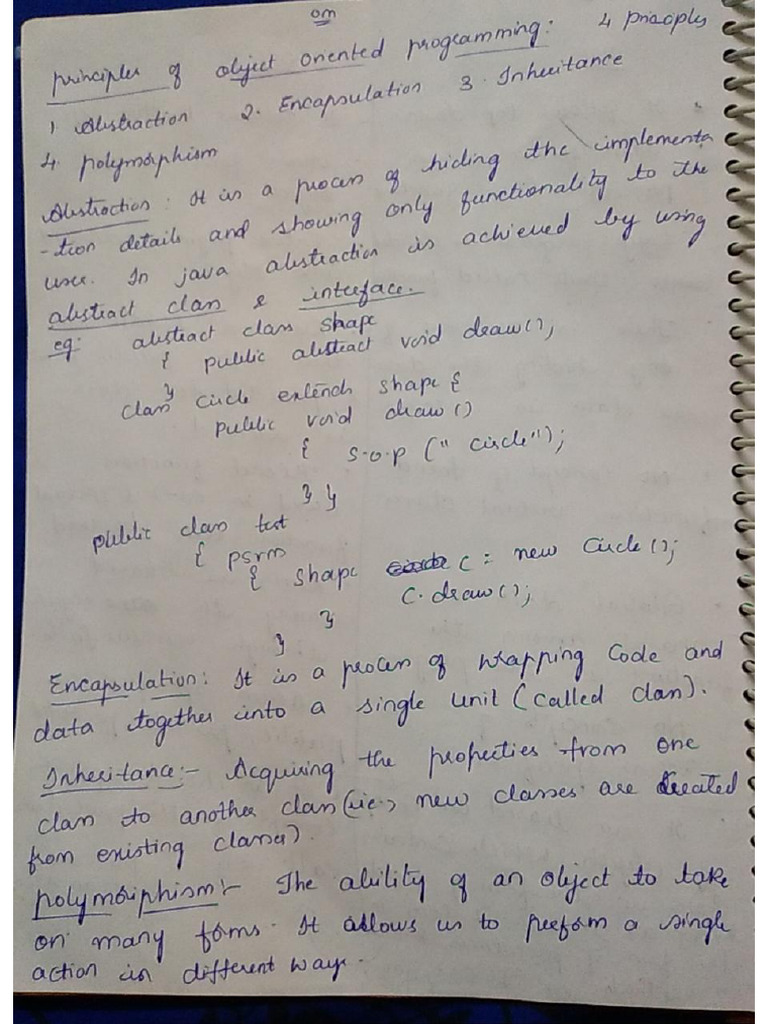 om
principles of object oriented programming: 4 principls
1. Abstraction 2. Encapsulation 3. Inheritance
4. polymorphism
Abstraction: It is a process of hiding the implementa
-tion details and showing only functionality to the
user. In java abstraction is achieved by using
abstract class & interface.
eg: abstract class shape
{ public abstract void draw();
}
class circle extends shape {
public void draw()
{ s.o.p (" circle");
} }
public class test
{ psvm
{ shape c = new Circle();
c.draw();
}
}
Encapsulation: It is a process of wrapping code and
data together into a single unit (called class).
Inheritance:- Acquiring the properties from one
class to another class (i.e., new classes are created
from existing classes).
polymorphism:- The ability of an object to take
on many forms. It allows us to perform a single
action in different ways.